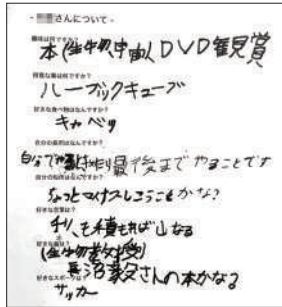 さんについて
趣味は何ですか?
本(生物、宇宙)、DVD観賞
得意な事は何ですか?
ハーブックキューブ
好きな食べ物はなんですか?
キャベツ
自分の長所はなんですか?
自分で 最後までやることです
自分の短所はなんですか?
なっとマイナスしこうこともかな?
好きな言葉は?
チリも積もれば山なる
(生物教授)
長沼毅さんの本かな?
好きなスポーツは?
サッカー